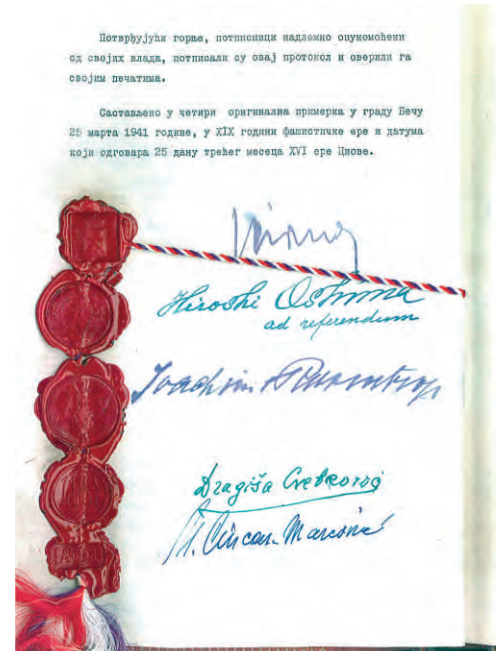 Потврђујући горње, потписници надлежно опуномоћени
од својих влада, потписали су овај протокол и оверили га
својим печатима.
Састављено у четири оригинална примерка у граду Бечу
25 марта 1941 године, у XIX години фашистичке ере и датума
који одговара 25 дану трећег месеца XVI ере Циове.
Hiroshi Oshima
ad referendum
Joachim v Ribbentrop
Dragiša Cvetković
A. Cincar-Marković